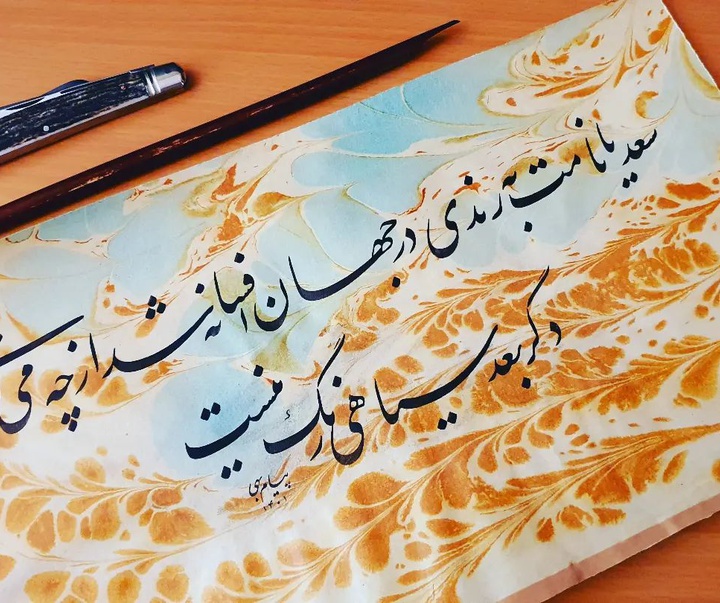 سعدیا نامت به رندی در جهان افسانه شد از چه می
دگر بعد سیاهی رنگ نیست
پیام
۱۴۰۱